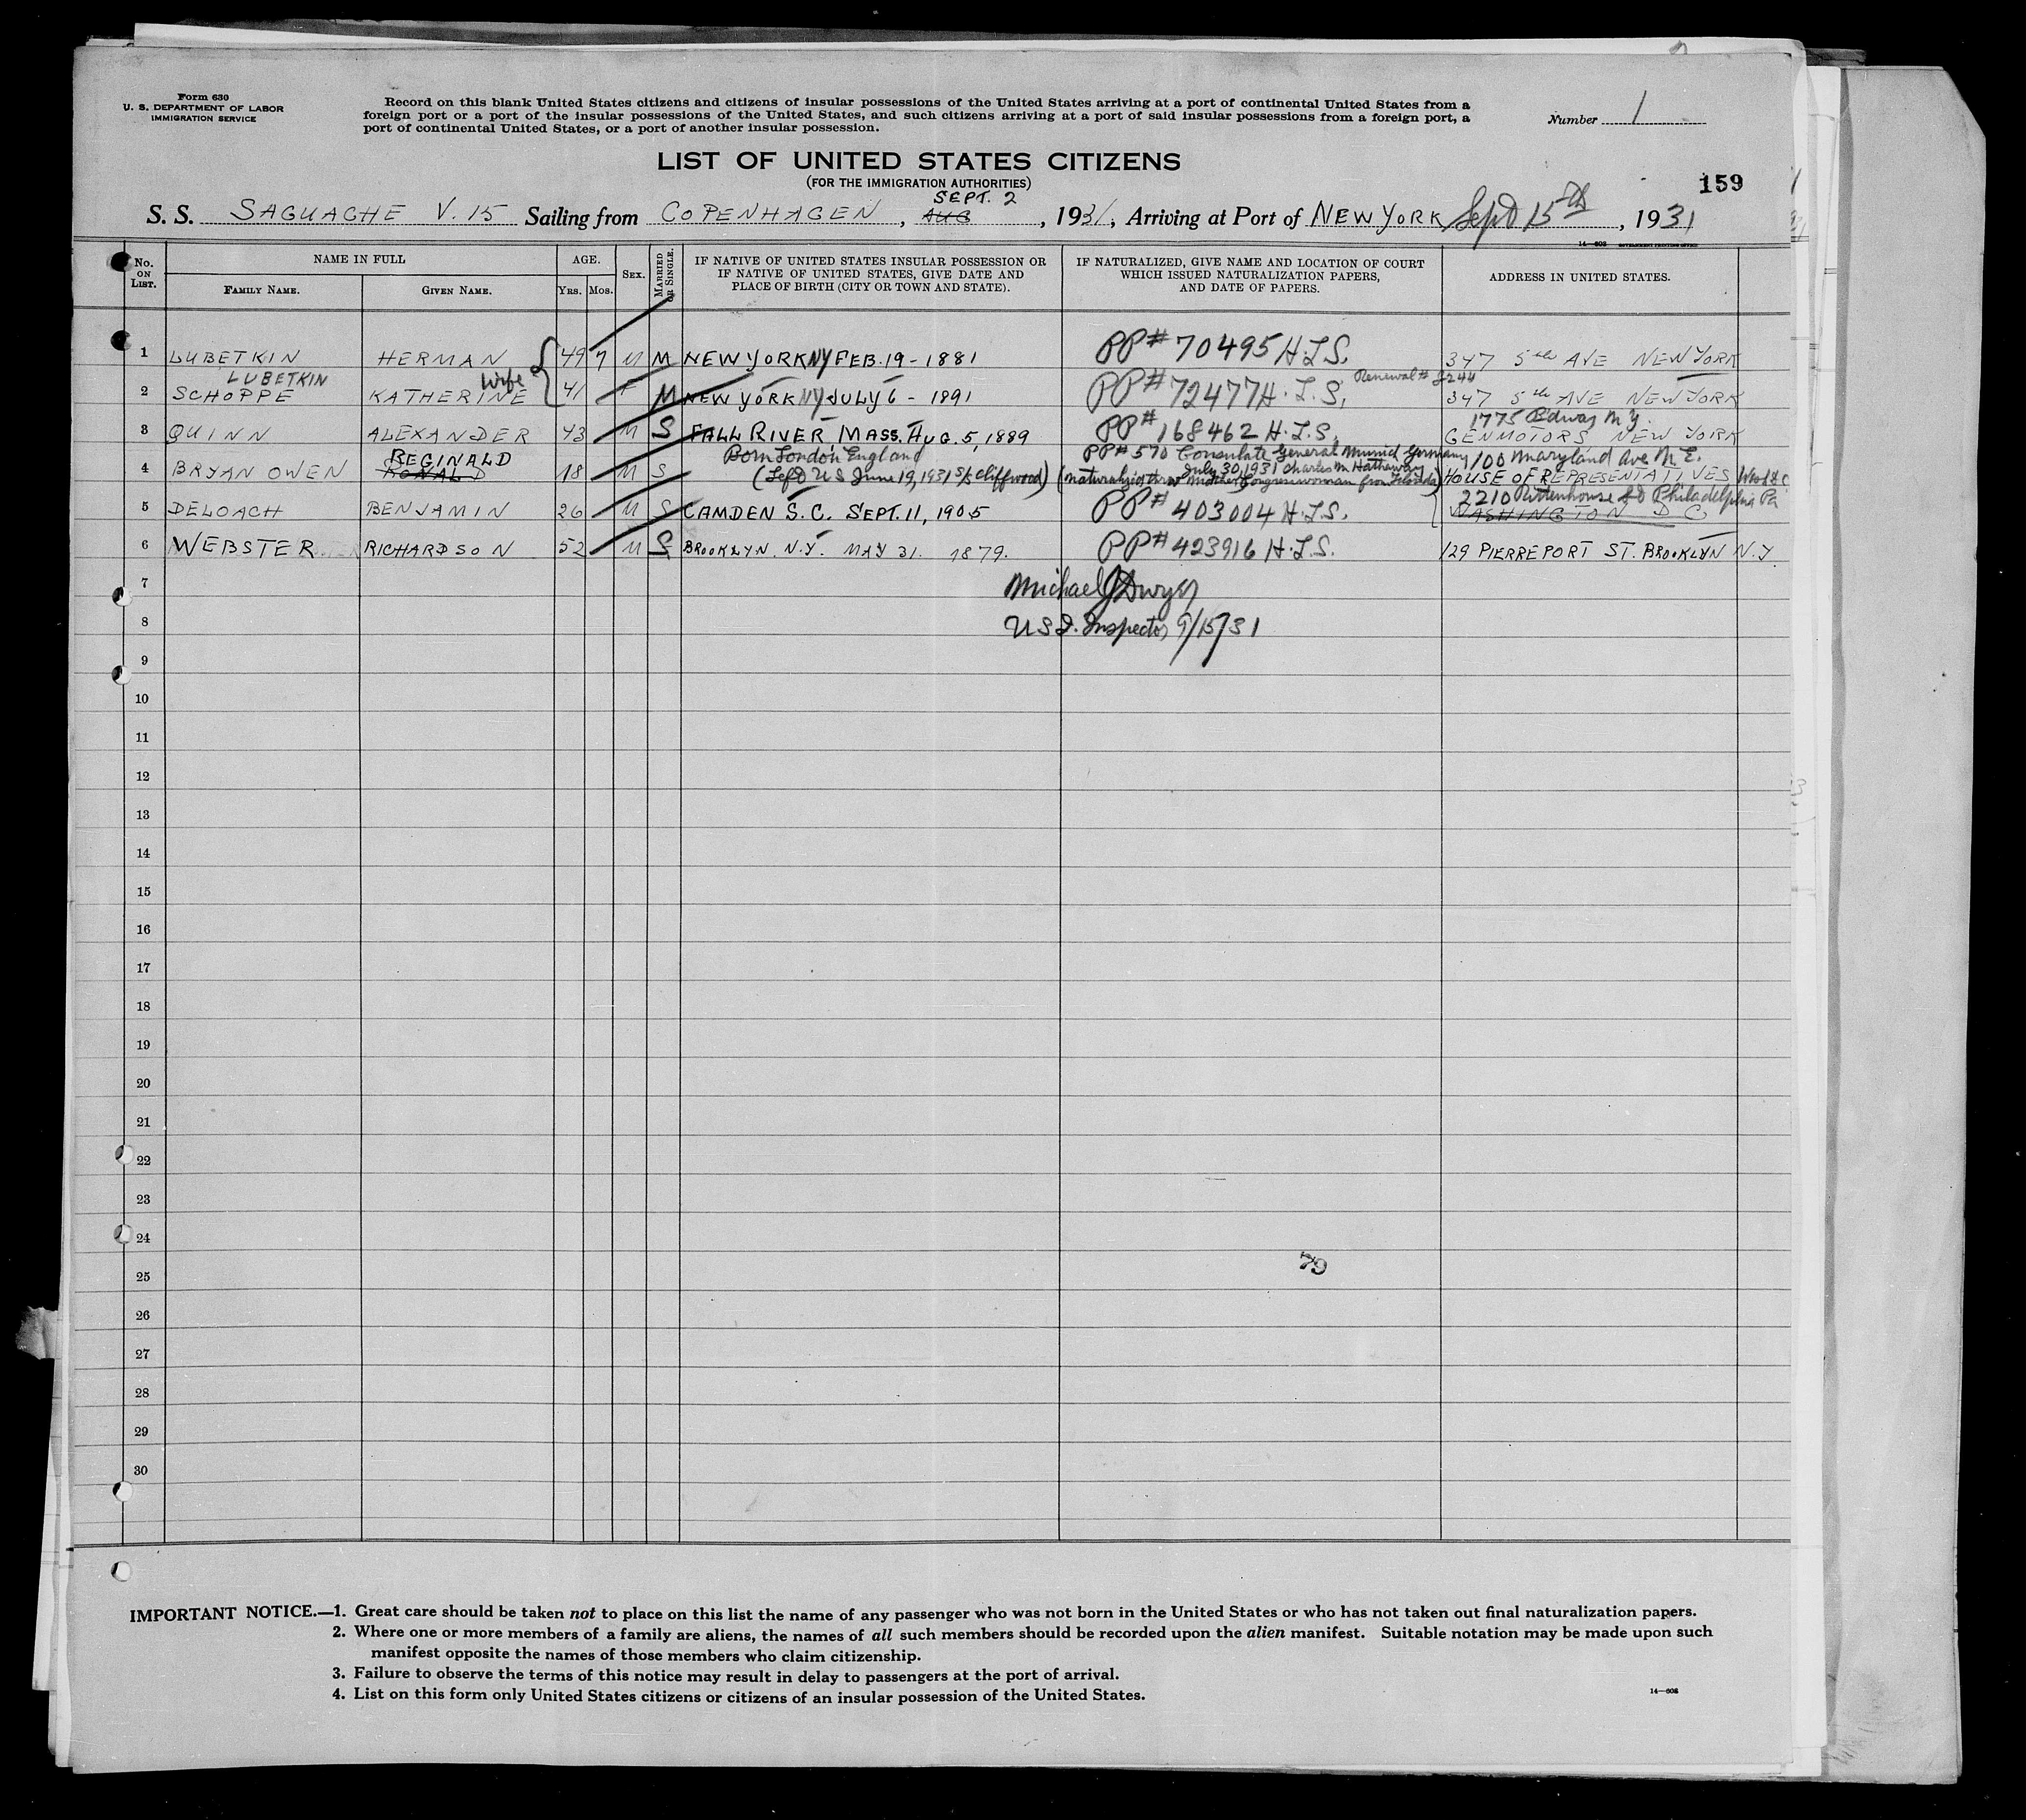 Form 630
U. S. DEPARTMENT OF LABOR
IMMIGRATION SERVICE
Record on this blank United States citizens and citizens of insular possessions of the United States arriving at a port of continental United States from a
foreign port or a port of the insular possessions of the United States, and such citizens arriving at a port of said insular possessions from a foreign port, a
port of continental United States, or a port of another insular possession.
Number 1
LIST OF UNITED STATES CITIZENS
(FOR THE IMMIGRATION AUTHORITIES)
159
SEPT. 2
S. S. SAGUACHE V. 15 Sailing from COPENHAGEN, AUG, 1931, Arriving at Port of NEW YORK Sept 15th, 1931
14-602 GOVERNMENT PRINTING OFFICE
No. ON LIST.
NAME IN FULL
FAMILY NAME.
GIVEN NAME.
AGE.
YRS. MOS.
SEX.
MARRIED OR SINGLE.
IF NATIVE OF UNITED STATES INSULAR POSSESSION OR
IF NATIVE OF UNITED STATES, GIVE DATE AND
PLACE OF BIRTH (CITY OR TOWN AND STATE).
IF NATURALIZED, GIVE NAME AND LOCATION OF COURT
WHICH ISSUED NATURALIZATION PAPERS,
AND DATE OF PAPERS.
ADDRESS IN UNITED STATES.
1 LUBETKIN HERMAN 49 7 M M NEW YORK NY FEB. 19 - 1881 PP# 70495 H.I.S. 347 5th AVE NEW YORK
LUBETKIN wife Renewal #
2 SCHOPPE KATHERINE 41 F M NEW YORK NY JULY 6 - 1891 PP# 72477 H.I.S. 347 5th AVE NEW YORK
1775 Bdway N.Y.
3 QUINN ALEXANDER 43 M S FALL RIVER, MASS. AUG. 5, 1889 PP# 168462 H.I.S. GENMOTORS NEW YORK
REGINALD Born London England PP# 570 Consulate General Munich Germany 100 Maryland Ave N.E.
July 30, 1931 Charles M. Hathaway
4 BRYAN OWEN RONALD 18 M S (Left US June 19, 1931 S/S Cliffwood) (naturalized thru mother Congresswoman from Florida) HOUSE OF REPRESENTATIVES Wash D.C.
2210 Rittenhouse St Philadelphia Pa
5 DELOACH BENJAMIN 26 M S CAMDEN S.C. SEPT. 11, 1905 PP# 403004 H.I.S. WASHINGTON D C
6 WEBSTER RICHARDSON 52 M S BROOKLYN. N.Y. MAY 31. 1879. PP# 423916 H.I.S. 129 PIERREPORT ST. BROOKLYN N.Y
7 Michael J Dwyer
8 U S I. Inspector 9/15/31
9
10
11
12
13
14
15
16
17
18
19
20
21
22
23
24
79
25
26
27
28
29
30
IMPORTANT NOTICE.—1. Great care should be taken not to place on this list the name of any passenger who was not born in the United States or who has not taken out final naturalization papers.
2. Where one or more members of a family are aliens, the names of all such members should be recorded upon the alien manifest. Suitable notation may be made upon such
manifest opposite the names of those members who claim citizenship.
3. Failure to observe the terms of this notice may result in delay to passengers at the port of arrival.
4. List on this form only United States citizens or citizens of an insular possession of the United States.
14-602